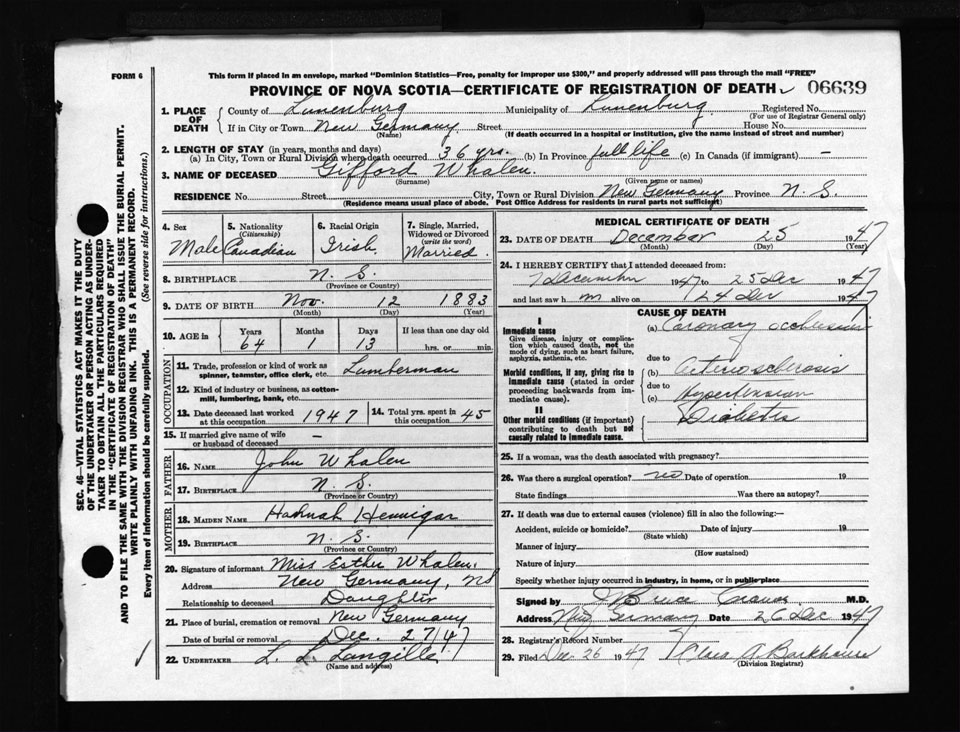 FORM 6
This form if placed in an envelope, marked "Dominion Statistics—Free, penalty for improper use $300," and properly addressed will pass through the mail "FREE"
PROVINCE OF NOVA SCOTIA—CERTIFICATE OF REGISTRATION OF DEATH 06639
1. PLACE OF DEATH
County of Lunenburg Municipality of Lunenburg Registered No.
(For use of Registrar General only)
If in City or Town New Germany Street House No.
(Name) (If death occurred in a hospital or institution, give the name instead of street and number)
2. LENGTH OF STAY (in years, months and days)
(a) In City, Town or Rural Division where death occurred 36 yrs. (b) In Province full life (c) In Canada (if immigrant) —
3. NAME OF DECEASED Gifford Whalen
(Surname) (Given name or names)
RESIDENCE No. Street City, Town or Rural Division New Germany Province N. S.
(Residence means usual place of abode. Post Office Address for residents in rural parts not sufficient)
4. Sex Male
5. Nationality (Citizenship) Canadian
6. Racial Origin Irish
7. Single, Married, Widowed or Divorced (write the word) Married.
8. BIRTHPLACE N. S.
(Province or Country)
9. DATE OF BIRTH Nov. 12 1883
(Month) (Day) (Year)
10. AGE in Years 64 Months 1 Days 13 If less than one day old hrs. or min.
OCCUPATION
11. Trade, profession or kind of work as spinner, teamster, office clerk, etc. Lumberman
12. Kind of industry or business, as cotton-mill, lumbering, bank, etc.
13. Date deceased last worked at this occupation 1947
14. Total yrs. spent in this occupation 45
15. If married give name of wife or husband of deceased —
FATHER
16. NAME John Whalen
17. BIRTHPLACE N. S.
(Province or Country)
MOTHER
18. MAIDEN NAME Hannah Hennigar
19. BIRTHPLACE N. S.
(Province or Country)
20. Signature of informant Miss Esther Whalen.
Address New Germany, NS
Relationship to deceased Daughter
21. Place of burial, cremation or removal New Germany
Date of burial or removal Dec. 27/47
22. UNDERTAKER L. L. Langille
(Name and address)
MEDICAL CERTIFICATE OF DEATH
23. DATE OF DEATH December 25 1947
(Month) (Day) (Year)
24. I HEREBY CERTIFY that I attended deceased from:
December 1947 to 25 Dec 1947
and last saw h m alive on 24 Dec 1947
CAUSE OF DEATH
I
Immediate cause
Give disease, injury or complication which caused death, not the mode of dying, such as heart failure, asphyxia, asthenia, etc.
(a) Coronary occlusion
due to
Morbid conditions, if any, giving rise to immediate cause (stated in order proceeding backwards from immediate cause).
(b) Arteriosclerosis
due to
(c) Hypertension
II
Other morbid conditions (if important) contributing to death but not causally related to immediate cause.
Diabetes
25. If a woman, was the death associated with pregnancy?
26. Was there a surgical operation? no Date of operation 19
State findings Was there an autopsy?
27. If death was due to external causes (violence) fill in also the following:—
Accident, suicide or homicide? Date of injury 19
(State which)
Manner of injury
(How sustained)
Nature of injury
Specify whether injury occurred in industry, in home, or in public place
Signed by J Bruce M.D.
Address New Germany Date 26 Dec 1947
28. Registrar's Record Number 7
29. Filed Dec. 26 1947 Clara A. Barkhouse
(Division Registrar)
SEC. 46—VITAL STATISTICS ACT MAKES IT THE DUTY
OF THE UNDERTAKER OR PERSON ACTING AS UNDER-
TAKER TO OBTAIN ALL THE PARTICULARS REQUIRED
IN THE "CERTIFICATE OF REGISTRATION OF DEATH"
AND TO FILE THE SAME WITH THE DIVISION REGISTRAR WHO SHALL ISSUE THE BURIAL PERMIT.
WRITE PLAINLY WITH UNFADING INK. THIS IS A PERMANENT RECORD.
Every item of information should be carefully supplied. (See reverse side for instructions.)